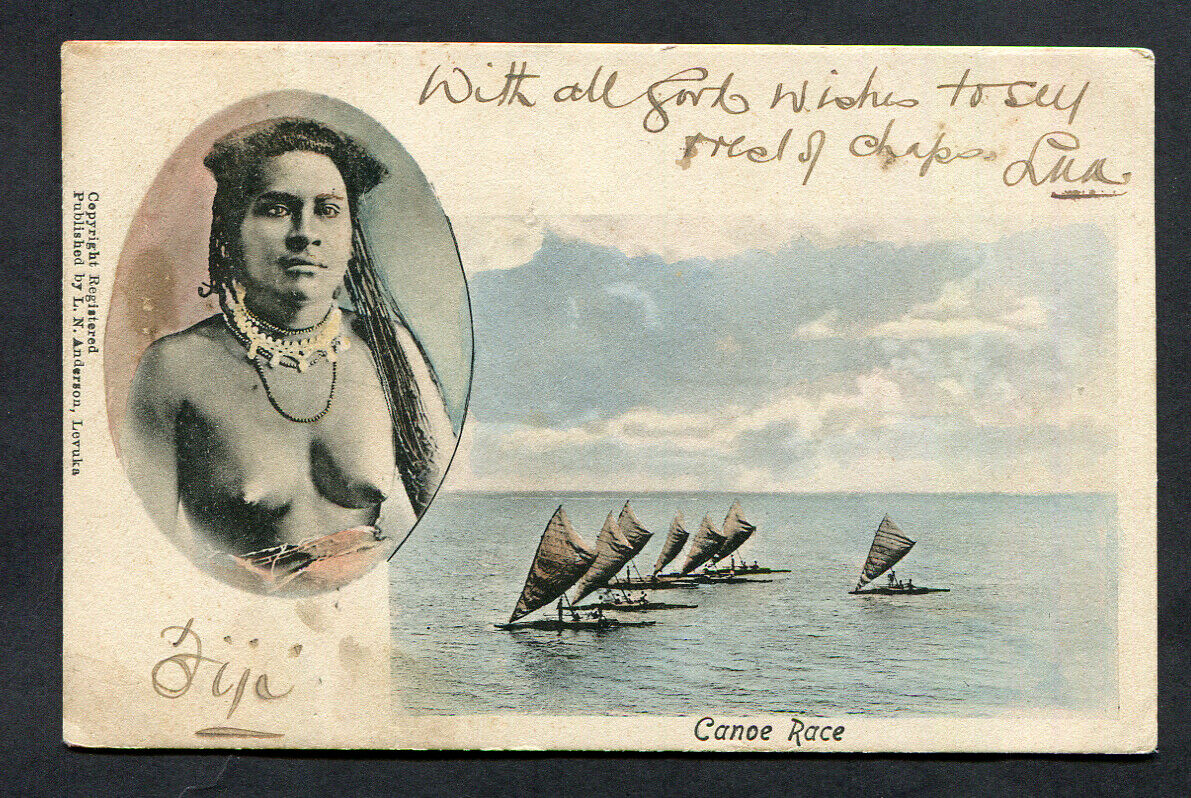 With all Good Wishes to self
rest of chaps.
Copyright Registered
Published by L. N. Anderson, Levuka
Fiji
Canoe Race